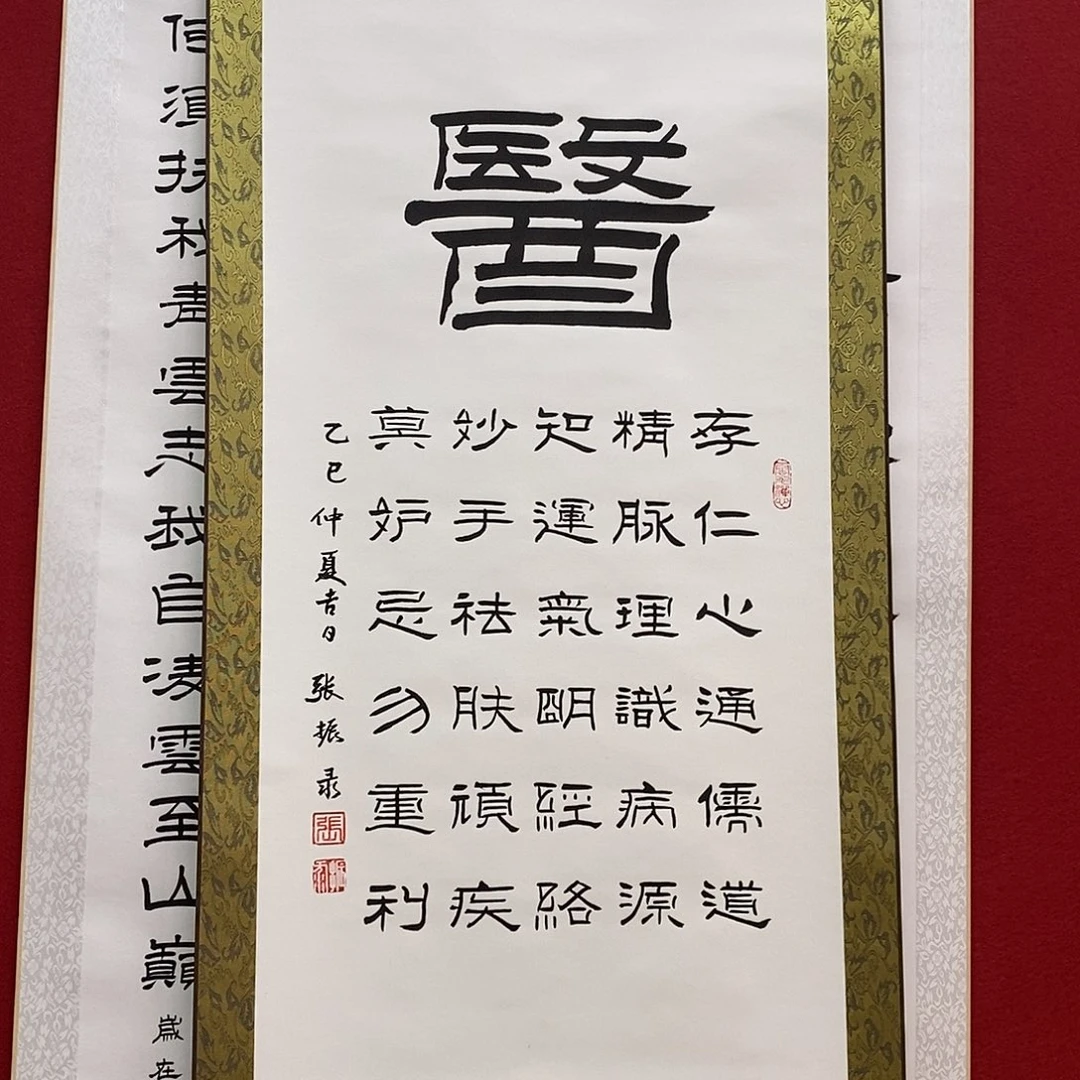 醫
存仁心通儒道
精脉理識病源
知運氣明經絡
妙手祛肤頑疾
莫妒忌勿重利
乙巳仲夏吉日 张振录
張
何湏扶我青雲志我自凌雲至山巔
歲在